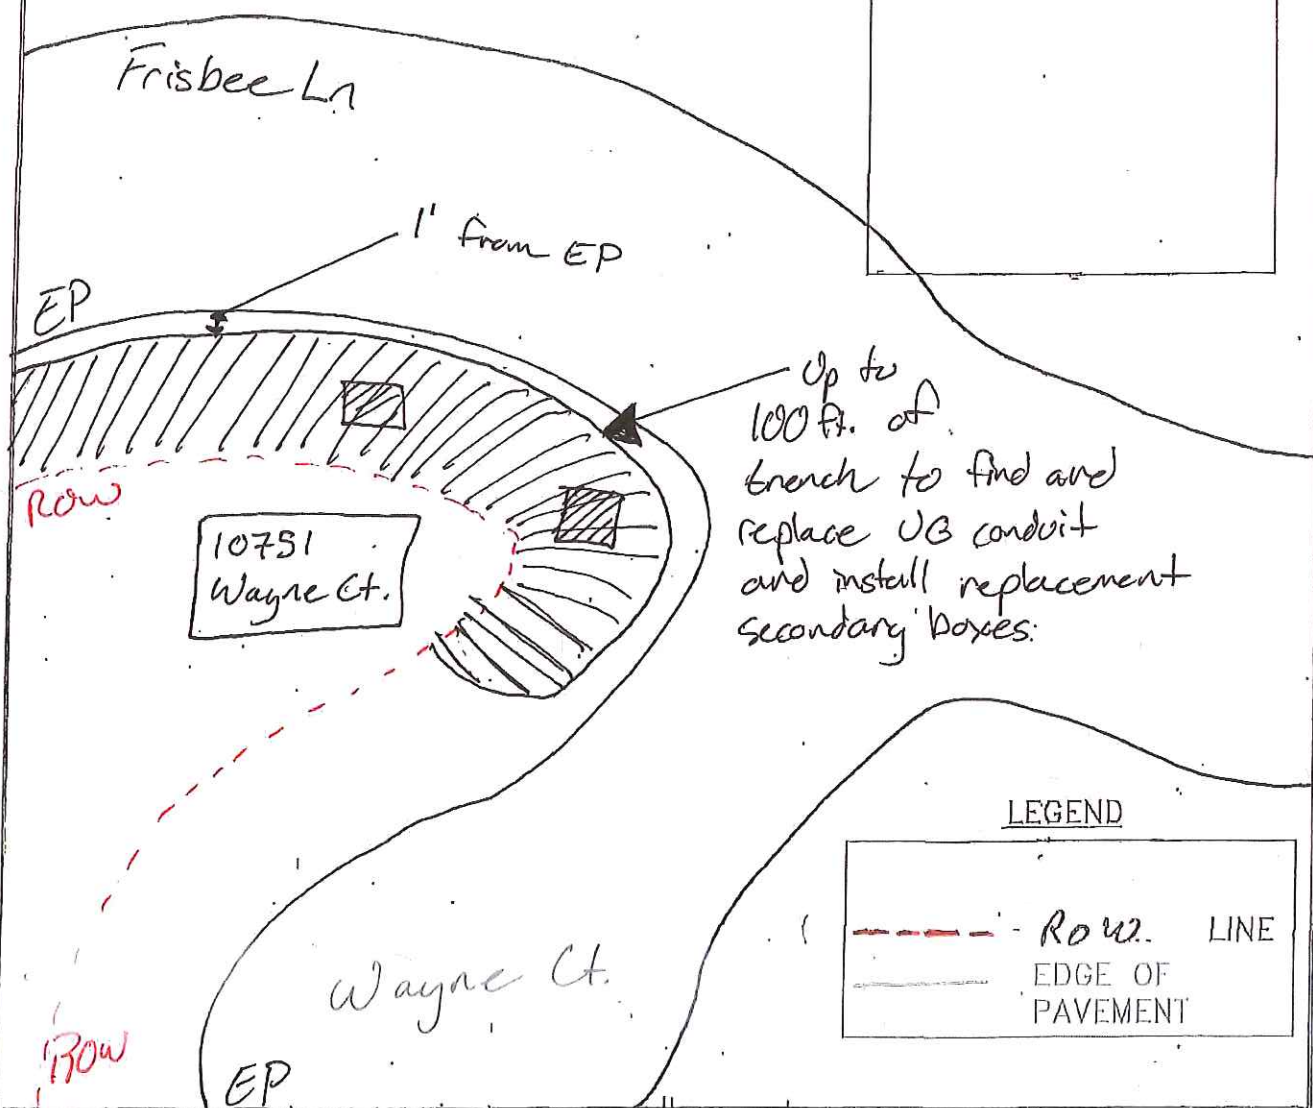 Frisbee Ln
1' from EP
EP
Up to
100 ft. of
trench to find and
replace UG conduit
and install replacement
secondary boxes.
ROW
10751
Wayne Ct.
LEGEND
ROW. LINE
EDGE OF
PAVEMENT
Wayne Ct.
ROW
EP